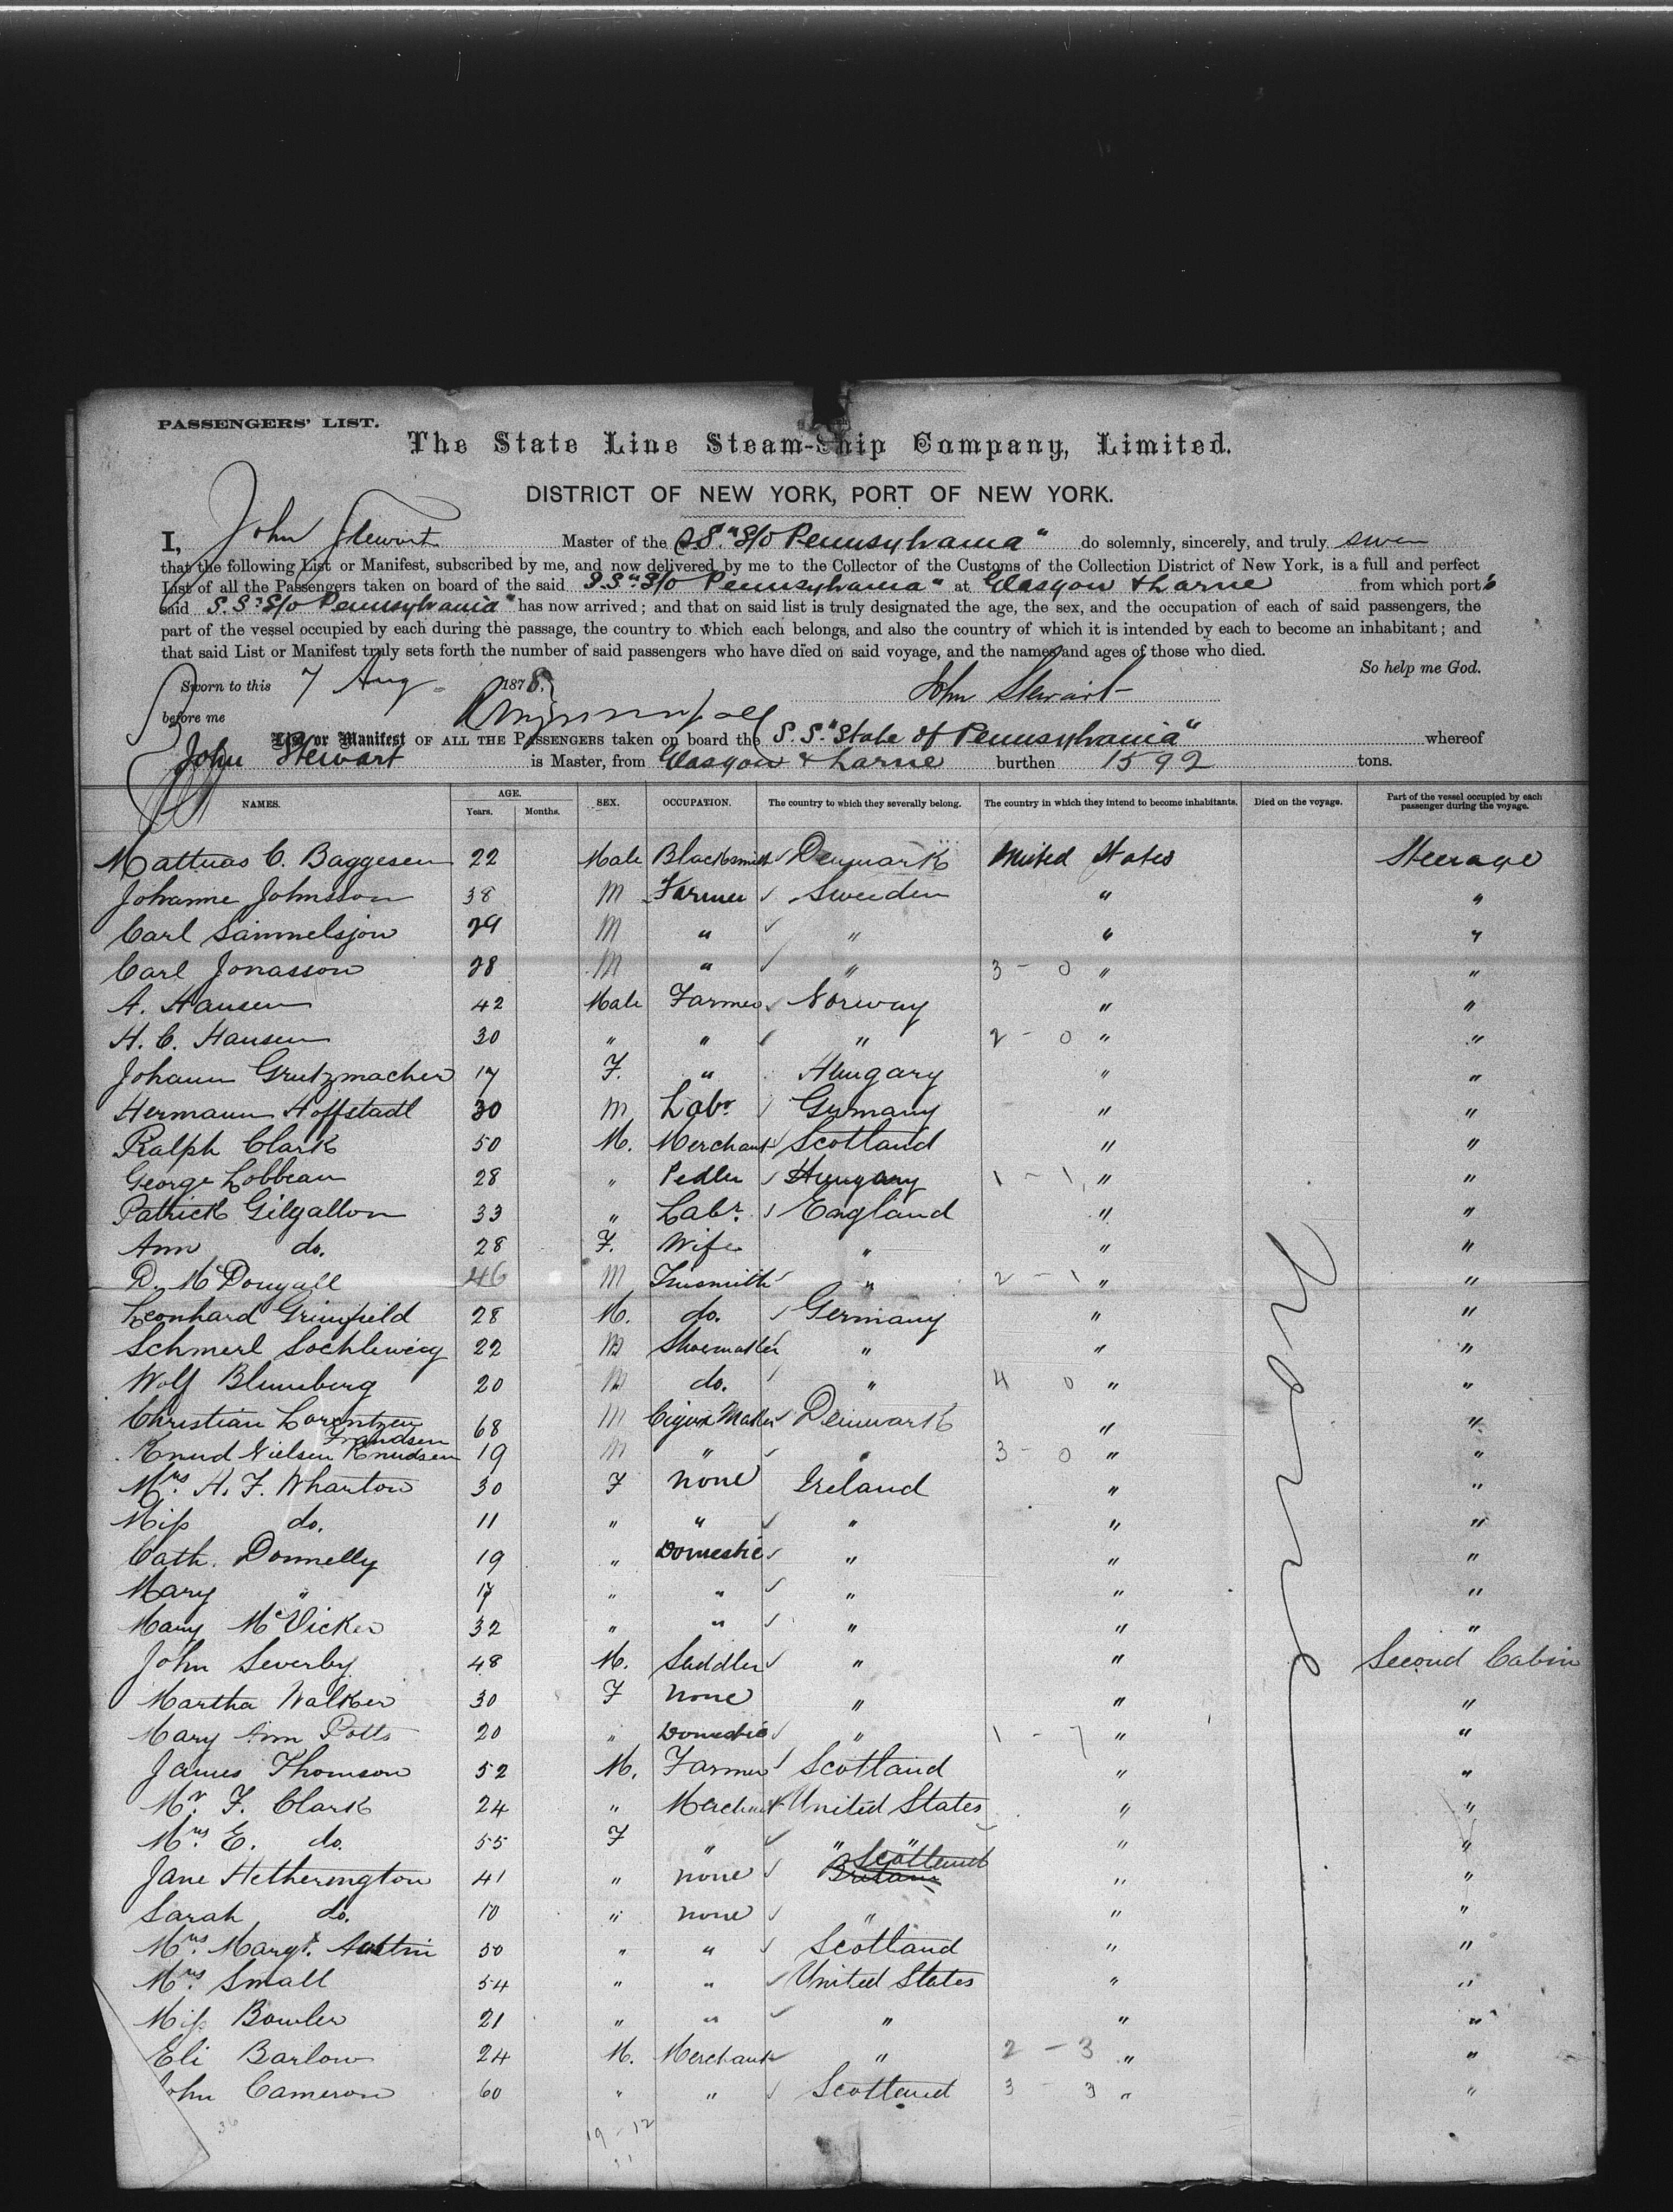 PASSENGERS' LIST.
The State Line Steam-Ship Company, Limited.
DISTRICT OF NEW YORK, PORT OF NEW YORK.
I, John Stewart Master of the S.S. "S/o Pennsylvania" do solemnly, sincerely, and truly swear
that the following List or Manifest, subscribed by me, and now delivered by me to the Collector of the Customs of the Collection District of New York, is a full and perfect
List of all the Passengers taken on board of the said S.S. "S/o Pennsylvania" at Glasgow & Larne from which port s
said S.S. "S/o Pennsylvania" has now arrived; and that on said list is truly designated the age, the sex, and the occupation of each of said passengers, the
part of the vessel occupied by each during the passage, the country to which each belongs, and also the country of which it is intended by each to become an inhabitant; and
that said List or Manifest truly sets forth the number of said passengers who have died on said voyage, and the names and ages of those who died.
So help me God.
Sworn to this 7 Aug 1878. John Stewart
before me
List or Manifest OF ALL THE PASSENGERS taken on board the S.S. "State of Pennsylvania" whereof
John Stewart is Master, from Glasgow & Larne burthen 1592 tons.
NAMES. AGE. Years. Months. SEX. OCCUPATION. The country to which they severally belong. The country in which they intend to become inhabitants. Died on the voyage. Part of the vessel occupied by each passenger during the voyage.
Mattuas C. Baggesen 22 Male Blacksmith Denmark United States Steerage
Johanne Johnsson 38 M Farmer Sweden " "
Carl Sammelsjon 29 M " " " "
Carl Jonasson 28 M " " 3 - 0 " "
A. Hansen 42 Male Farmer Norway " "
H. C. Hansen 30 " " " 2 - 0 " "
Johann Grutzmacher 17 F. " Hungary " "
Hermann Hoffstadt 30 M Labr. Germany " "
Ralph Clark 50 M. Merchant Scotland " "
George Lobbeau 28 " Pedler Hungary 1 - 1 " "
Patrick Gilgallon 33 " Labr. England " "
Ann do. 28 F. Wife " " "
D. McDougall 46 M Tinsmith " 2 - 1 " "
Leonhard Grinfield 28 M. do. Germany " "
Schmerl Sochlewicg 22 M Shoemaker " " "
Wolf Blumberg 20 M do. " 4 0 " "
Christian Lorentzen 68 M Cigar Maker Denmark " "
Frandsen
Knud Nielsen Knudsen 19 M " " 3 - 0 " "
Mrs. H. F. Wharton 30 F none Ireland " "
Miss do. 11 " " " " "
Cath. Donnelly 19 " Domestic " " "
Mary " 17 " " " " "
Mary McVicker 32 " " " " "
John Severby 48 M. Saddler " " Second Cabin
Martha Walker 30 F none " " "
Mary Ann Potts 20 " Domestic " 1 - 7 " "
James Thomson 52 M. Farmer Scotland " "
Mr. F. Clark 24 " Merchant United States " "
Mrs. E. do. 55 F " " " " "
Scotland
Jane Hetherington 41 " none Britain " "
Sarah do. 10 " none " " "
Mrs. Margt. Austin 50 " " Scotland " "
Mrs. Small 54 " " United States " "
Miss Bowler 21 " " " " "
Eli Barlow 24 M. Merchant " 2 - 3 " "
John Cameron 60 " " Scotland 3 - 3 " "
36
19 - 12